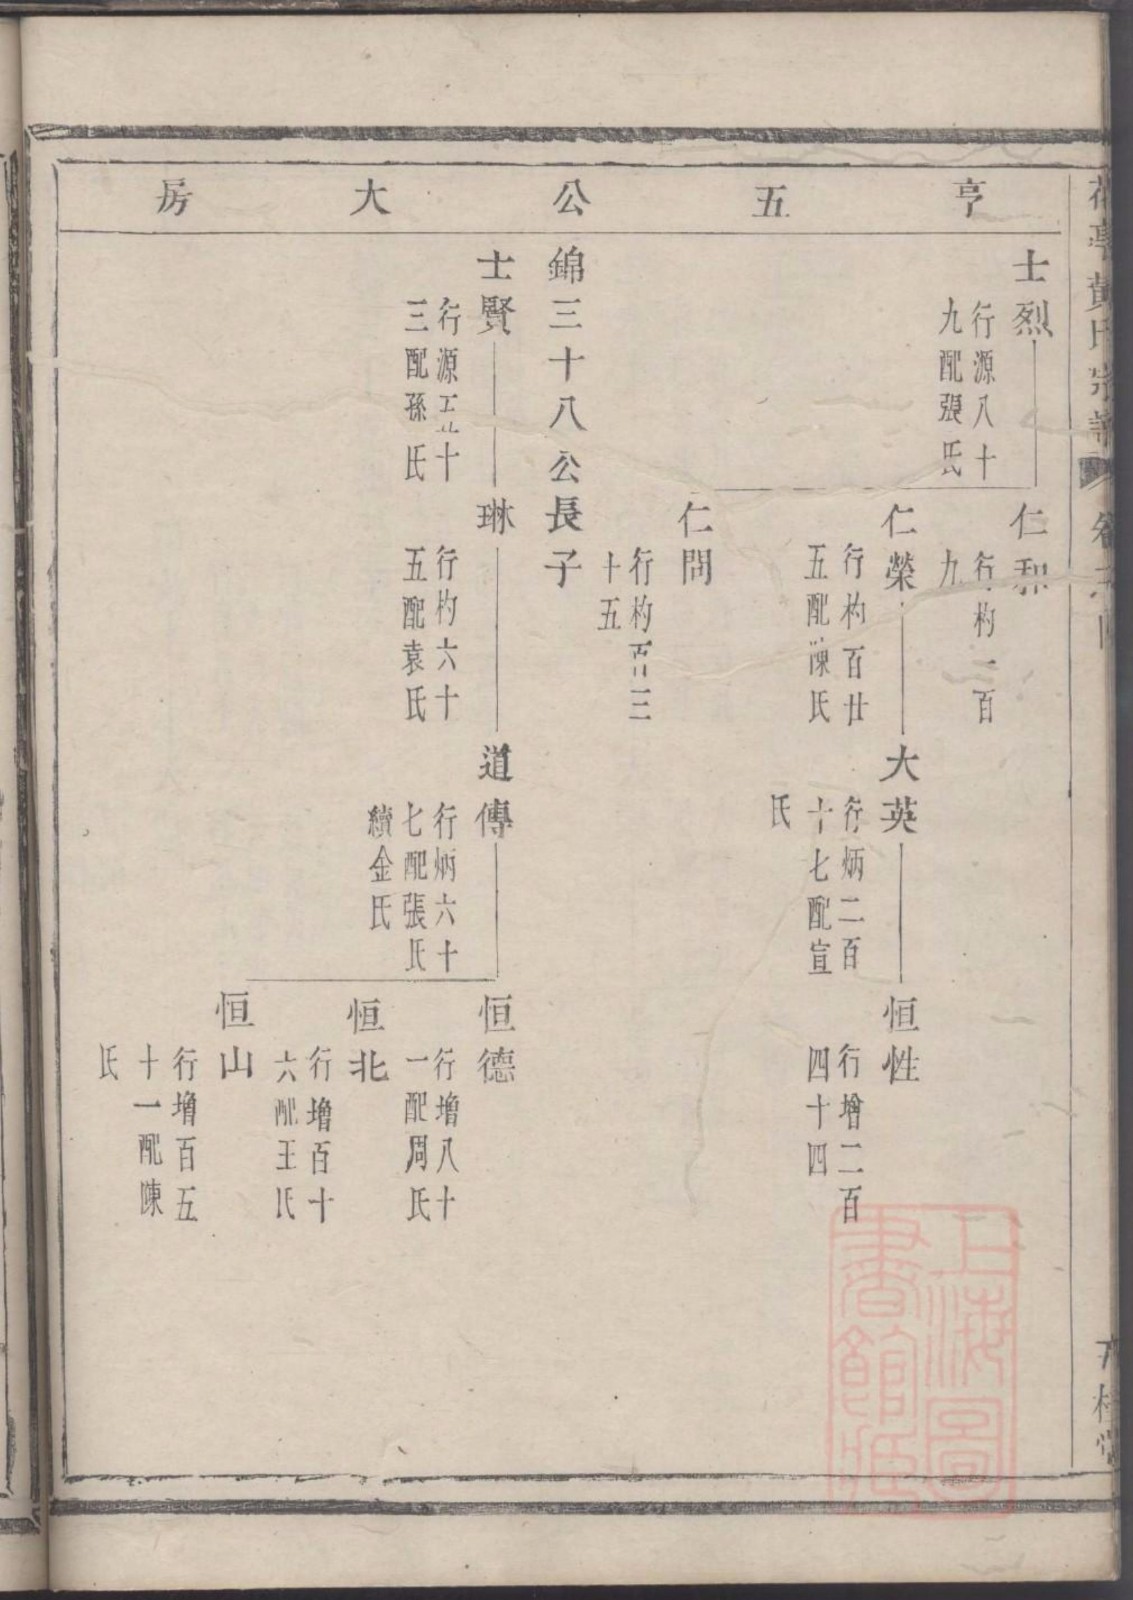 亨五公大房
士烈
行源八十
九配張氏
仁和
行杓一百
九
仁榮
行杓百廿
五配陳氏
大英
行炳二百
十七配宣
氏
恒性
行增二百
四十四
仁問
行杓百三
十五
錦三十八公長子
士賢
行源五十
三配孫氏
琳
行杓六十
五配袁氏
道傳
行炳六十
七配張氏
續金氏
恒德
行增八十
一配周氏
恒北
行增百十
六配王氏
恒山
行增百五
十一配陳
氏
黃氏宗譜
上海圖
書館藏